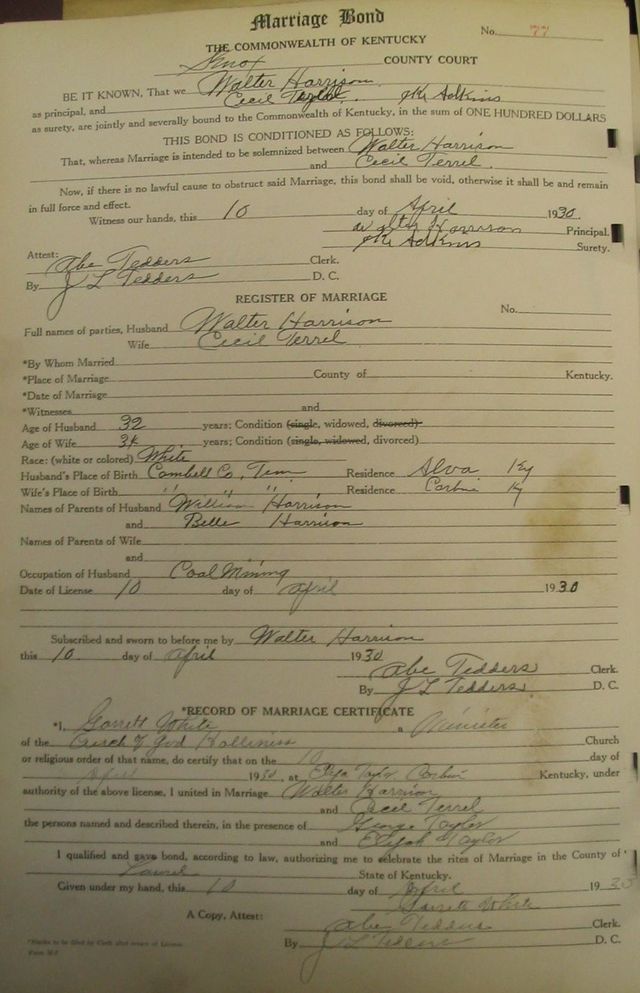 Marriage Bond
No. 77
THE COMMONWEALTH OF KENTUCKY
Knox COUNTY COURT
BE IT KNOWN, That we Walter Harrison
as principal, and Cecil J K Adkins
as surety, are jointly and severally bound to the Commonwealth of Kentucky, in the sum of ONE HUNDRED DOLLARS
THIS BOND IS CONDITIONED AS FOLLOWS:
That, whereas Marriage is intended to be solemnized between Walter Harrison
and Cecil Terrel
Now, if there is no lawful cause to obstruct said Marriage, this bond shall be void, otherwise it shall be and remain
in full force and effect.
Witness our hands, this 10 day of April 1930.
Walter Harrison Principal.
J K Adkins Surety.
Attest:
Abe Tedders Clerk.
By J L Tedders D. C.
REGISTER OF MARRIAGE
No.
Full names of parties, Husband Walter Harrison
Wife Cecil Terrel
*By Whom Married
*Place of Marriage County of Kentucky.
*Date of Marriage
*Witnesses and
Age of Husband 32 years; Condition (single, widowed, divorced)
Age of Wife 34 years; Condition (single, widowed, divorced)
Race: (white or colored) White
Husband's Place of Birth Cambell Co, Tenn Residence Alva Ky
Wife's Place of Birth " " " Residence Corbin Ky
Names of Parents of Husband William Harrison
and Belle Harrison
Names of Parents of Wife
and
Occupation of Husband Coal Mining
Date of License 10 day of April 1930
Subscribed and sworn to before me by Walter Harrison
this 10 day of April 1930
Abe Tedders Clerk.
By J L Tedders D. C.
*RECORD OF MARRIAGE CERTIFICATE
*I, Garrett White a Minister
of the Church of God Holliness Church
or religious order of that name, do certify that on the 10 day of
April 1930, at Elija Taylor Corbin Kentucky, under
authority of the above license, I united in Marriage Walter Harrison
and Cecil Terrel
the persons named and described therein, in the presence of George Taylor
and Elijah Taylor
I qualified and gave bond, according to law, authorizing me to celebrate the rites of Marriage in the County of
Laurel State of Kentucky.
Given under my hand, this 10 day of April 1930
Garrett White
A Copy, Attest: Abe Tedders Clerk.
By J L Tedders D. C.
*Blanks to be filled by Clerk after return of License.